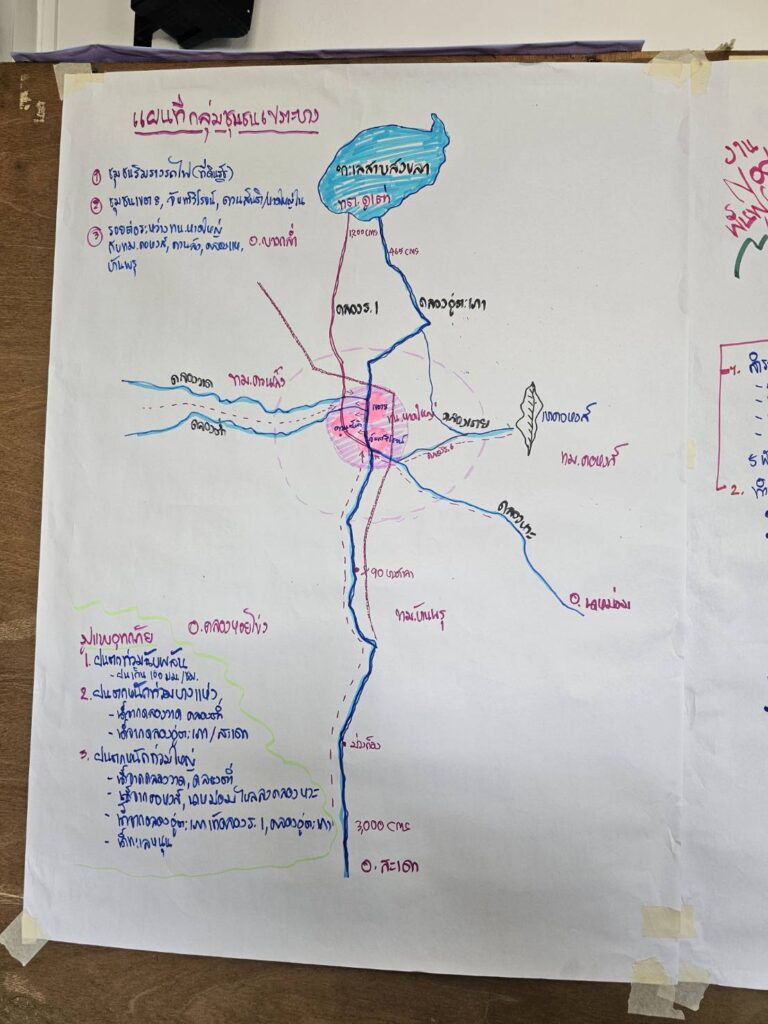 แผนที่กลุ่มชุมชนเปราะบาง
① ชุมชนริมทางรถไฟ (ที่ดินรัฐ)
② ชุมชนเขต 8, จันทร์วิโรจน์, ควนสันติ/หาดใหญ่ใน
③ รอยต่อระหว่าง ทน.หาดใหญ่
กับ ทม.คอหงส์, ควนลัง, คลองแห,
บ้านพรุ
อ.บางกล่ำ
ทะเลสาบสงขลา
ทต.คูเต่า
1,200 cms
465 cms
คลอง ร.1
คลองอู่ตะเภา
คลองวาด
ทม.ควนลัง
คลองต่ำ
เขต 8
ทน.หาดใหญ่
คลองเรียน
คลอง ร.6
เขาคอหงส์
ทม.คอหงส์
คลองหวะ
อ.นาหม่อม
X.90
ทม.บ้านพรุ
อ.คลองหอยโข่ง
ม่วงก็อง
3,000 cms
อ.สะเดา
รูปแบบอุทกภัย
1. ฝนตกท่วมฉับพลัน
- ฝนเกิน 100 มม./ชม.
2. ฝนตกหนักท่วมบางแห่ง
- น้ำจากคลองวาด คลองต่ำ
- น้ำจากคลองอู่ตะเภา/สะเดา
3. ฝนตกหนักท่วมใหญ่
- น้ำจากคลองวาด, คลองต่ำ
- น้ำจากคอหงส์, นาหม่อมไหลลงคลองหวะ
- น้ำจากคลองอู่ตะเภา คลอง ร.1, คลองอู่ตะเภา
- น้ำทะเลหนุน
งาน
1. สำร
2. ทำ